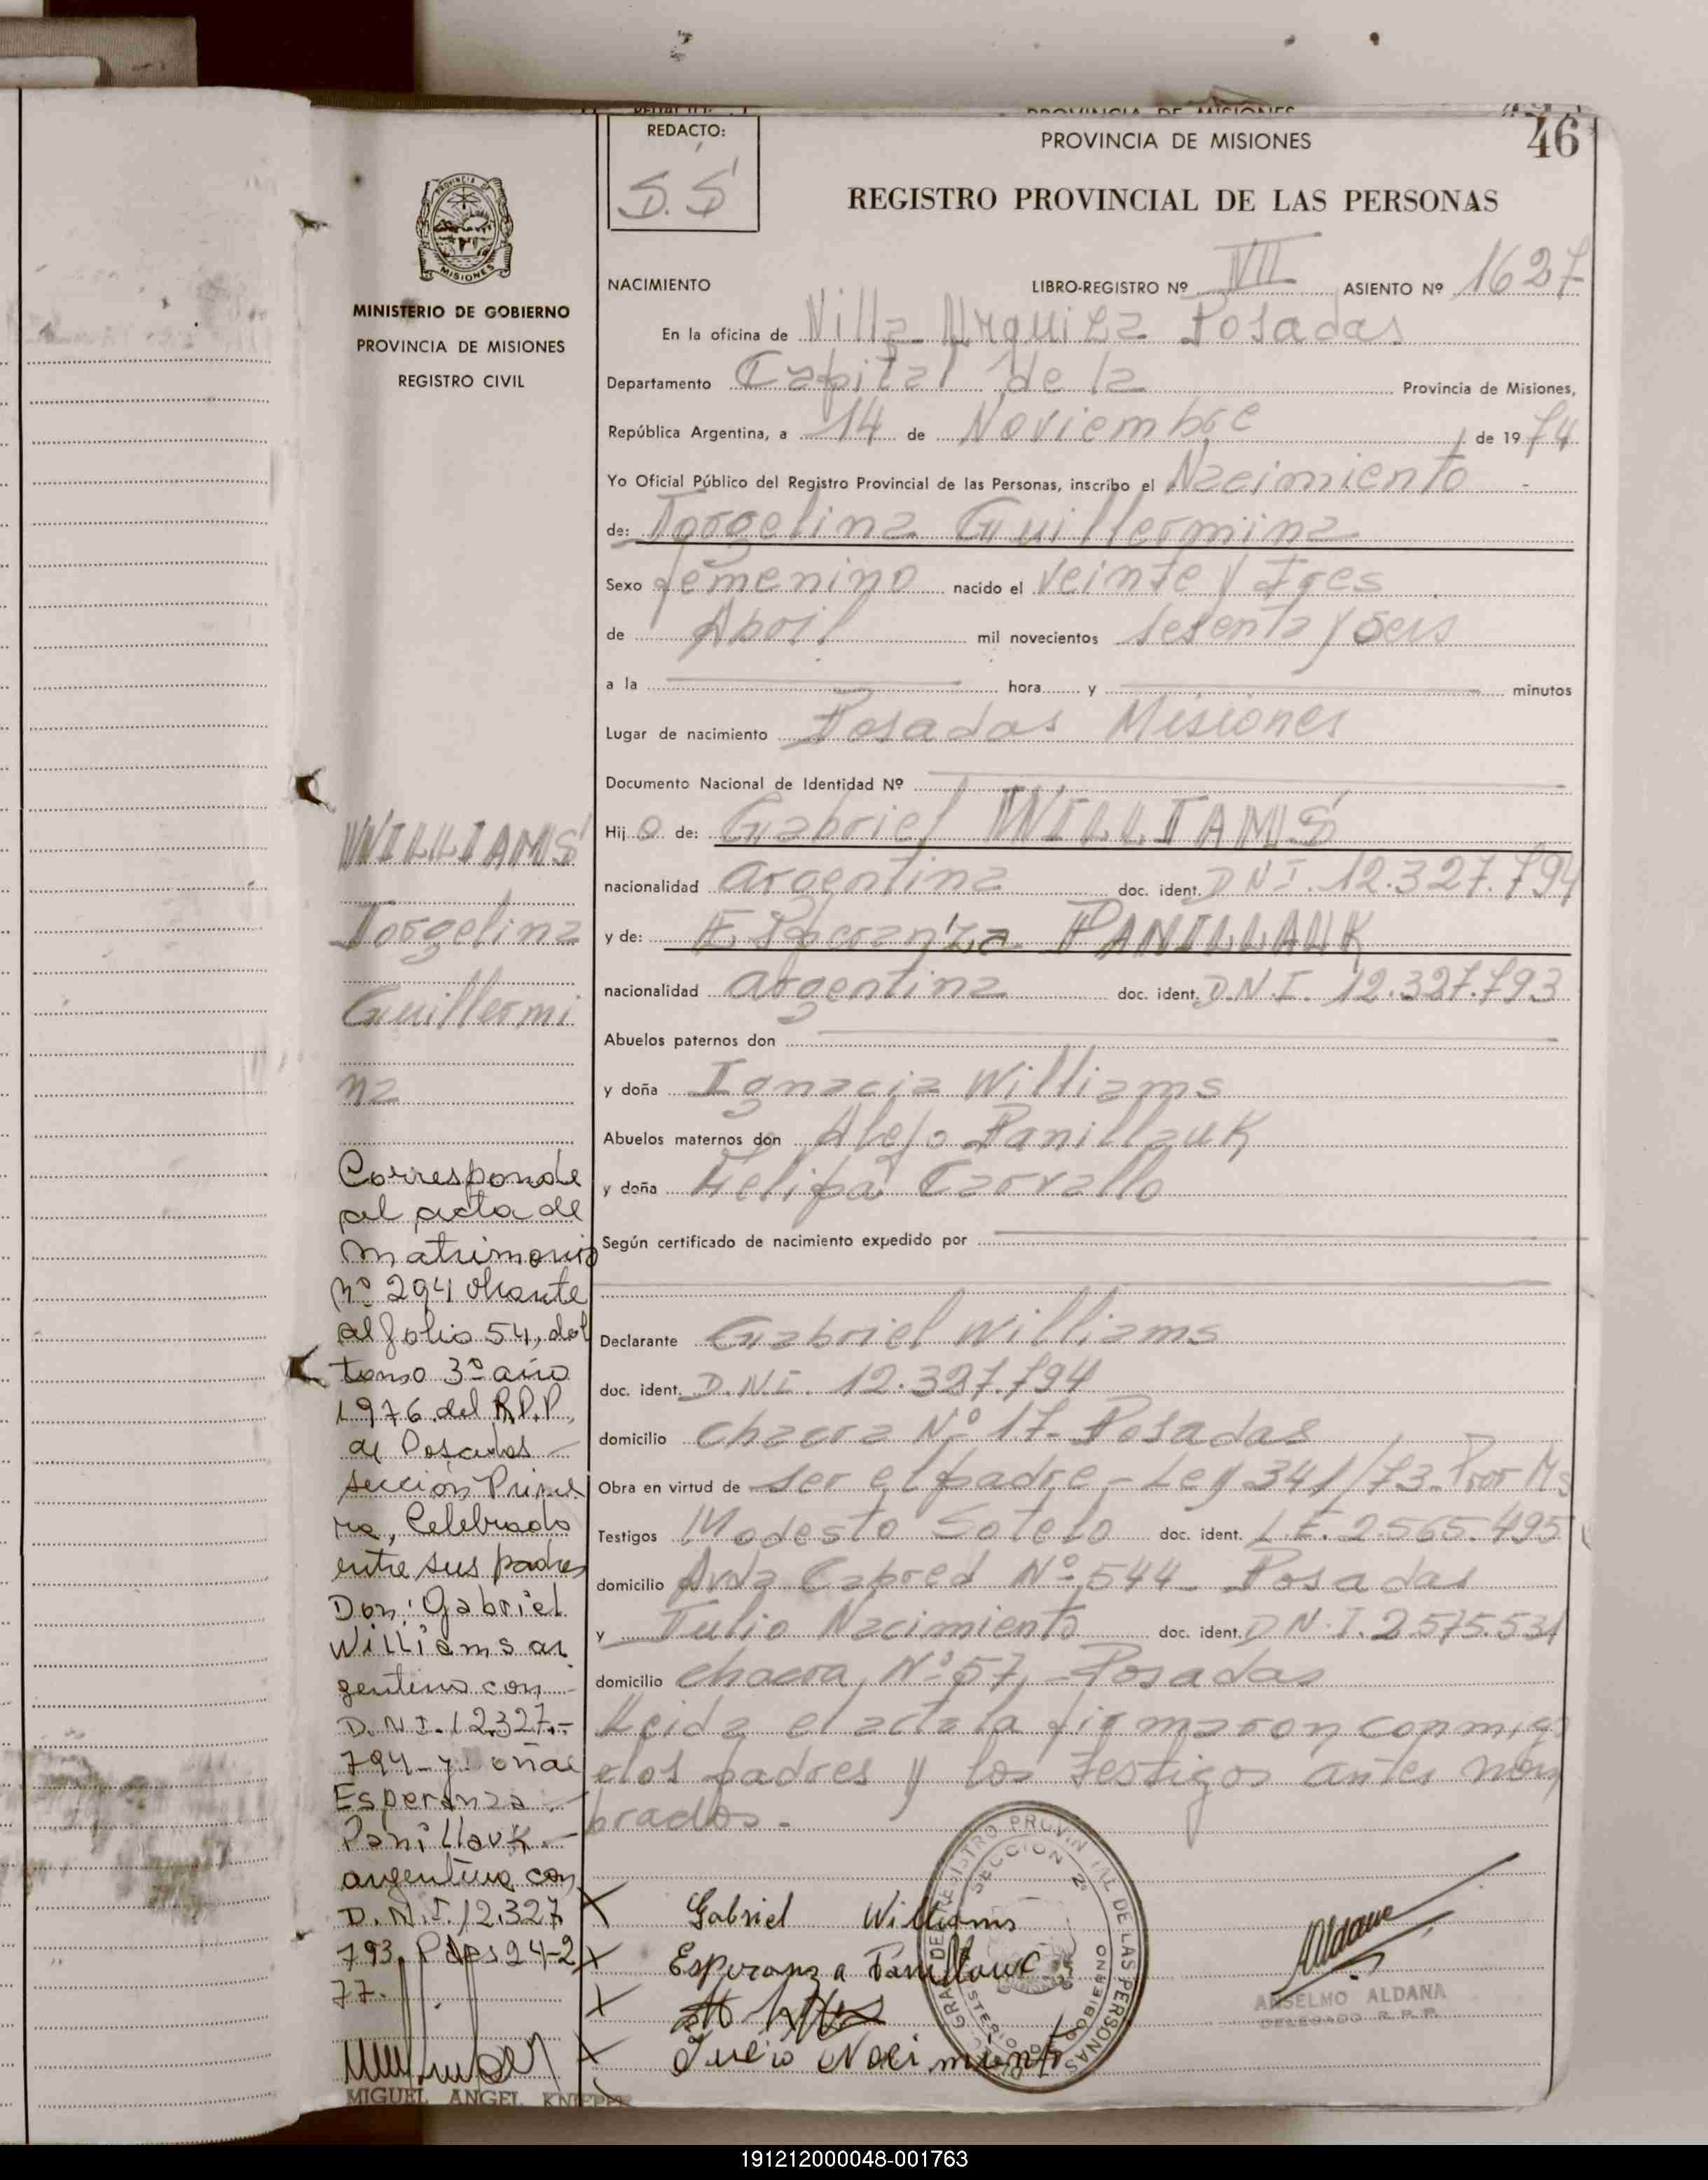 46
REDACTO:
S.S
PROVINCIA DE MISIONES
REGISTRO PROVINCIAL DE LAS PERSONAS
PROVINCIA DE
MISIONES
MINISTERIO DE GOBIERNO
PROVINCIA DE MISIONES
REGISTRO CIVIL
NACIMIENTO LIBRO-REGISTRO Nº VII ASIENTO Nº 1627
En la oficina de Villa Urquiza Posadas
Departamento Capital de la Provincia de Misiones,
República Argentina, a 14 de Noviembre de 1974
Yo Oficial Público del Registro Provincial de las Personas, inscribo el Nacimiento -
de: Jorgelina Guillermina
Sexo femenino nacido el veinte y tres
de Abril mil novecientos setenta y seis
a la hora y minutos
Lugar de nacimiento Posadas Misiones
Documento Nacional de Identidad Nº
Hijo de: Gabriel WILLIAMS
nacionalidad argentina doc. ident. DNI. 12.327.794
y de: Esperanza PANILLAUK
nacionalidad argentina doc. ident. D.N.I. 12.327.793
Abuelos paternos don
y doña Ignacia Williams
Abuelos maternos don Alejo Panillauk
y doña Felipa Carvallo
Según certificado de nacimiento expedido por
Declarante Gabriel Williams
doc. ident. D.N.I. 12.327.794
domicilio chacra Nº 17- Posadas
Obra en virtud de ser el padre - Ley 341/73- Por Ms
Testigos Modesto Sotelo doc. ident. L.E. 2.565.495
domicilio Avda Cabred Nº 544- Posadas
y Julio Nacimiento doc. ident. D N.I. 2.575.531
domicilio chacra Nº 57, - Posadas
Leida el acta la firmaron conmig
o los padres y los testigos antes nom
brados. -
WILLIAMS
Jorgelina
Guillermi
na
Corresponde
al acta de
matrimonio
nº 294 obrante
al folio 54, del
tomo 3º año
1976 del R.P.P.
de Posadas -
sección Prime
ra, Celebrado
entre sus padres
Don: Gabriel
Williams ar
gentino con
D.N.I. 12.327.-
794- y
Esperanza -
Panillauk -
argentina con
D.N.I. 12.327
793. Pdas 24-2
77.
MIGUEL ANGEL
X Gabriel Williams
X Esperanza Panillauc
X
X Julio Nacimiento
SECCION 2ª
DE LAS PERSONAS
ANSELMO ALDANA
DELEGADO R.P.P.
191212000048-001763